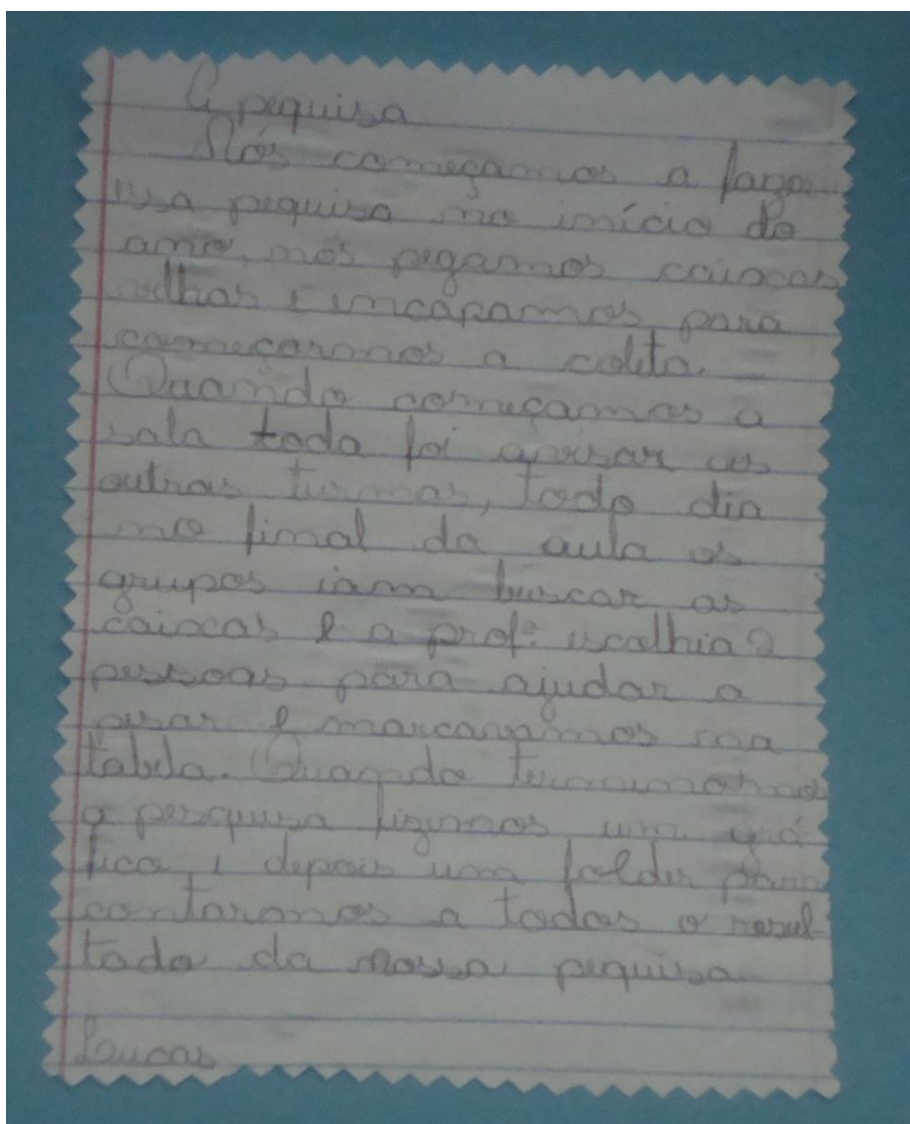 A pequisa
Nós começamos a fazer
essa pequisa no início do
ano, nós pegamos caixas
velhas e incapamos para
começarmos a coleta.
Quando começamos a
sala toda foi avisar as
outras turmas, todo dia
no final da aula os
grupos iam buscar as
caixas e a profª escolhia 2
pessoas para ajudar a
pesar e marcarmos na
tabela. Quando
a pesquisa fizemos um grá
fico e depois um folder para
contarmos a todos o resul
tado da nossa pequisa
Loucas